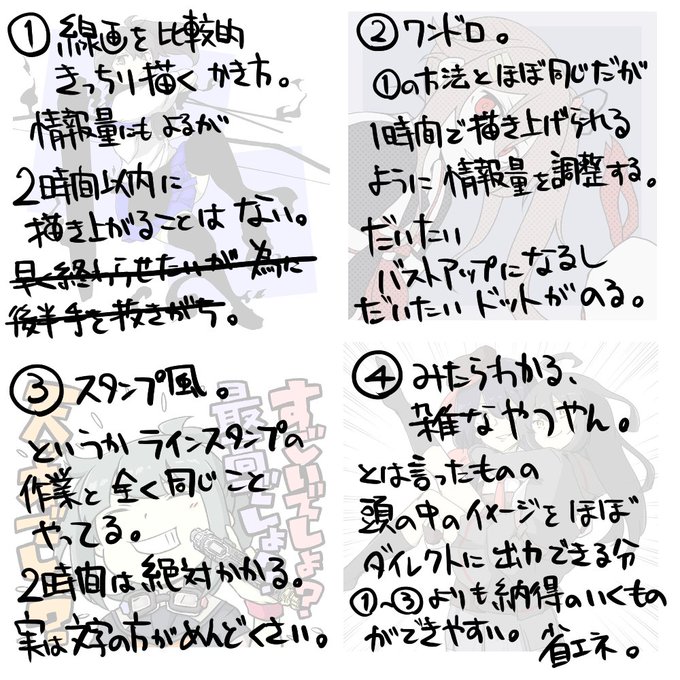 ① 線画を比較的
きっちり描くかき方。
情報量にもよるが
2時間以内に
描き上がることはない。
早く終わらせたいが為に
後半手を抜きがち。
② ワンドロ。
①の方法とほぼ同じだが
1時間で描き上げられる
ように情報量を調整する。
だいたい
バストアップになるし
だいたいドットがのる。
③ スタンプ風。
というかラインスタンプの
作業と全く同じこと
やってる。
2時間は絶対かかる。
実は文字の方がめんどくさい。
すごいでしょ?
最高でしょ?
④ みたらわかる、
雑なやつやん。
とは言ったものの
頭の中のイメージをほぼ
ダイレクトに出力できる分
①~③よりも納得のいくもの
ができやすい。省エネ。